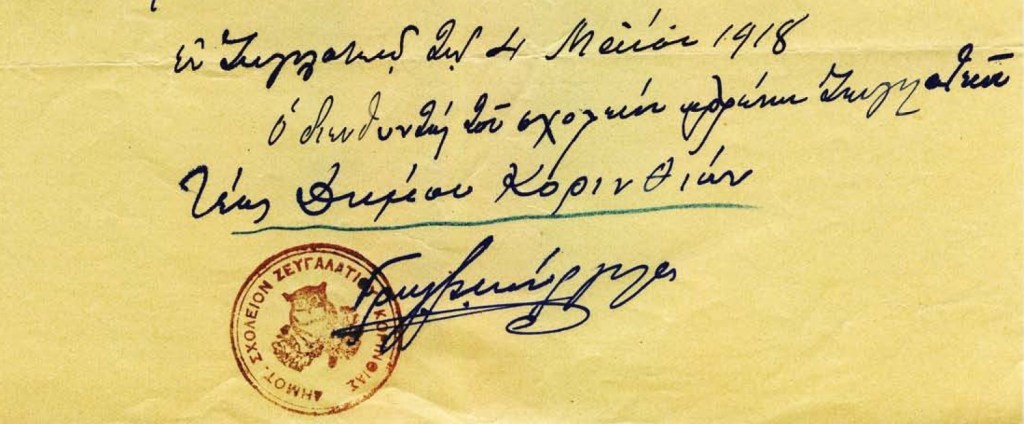 Ἐν Ζευγολατειῷ τῇ 4 Μαΐου 1918
Ὁ διευθυντής τοῦ σχολείου ἀρρένων Ζευγολατειοῦ
τέως Δήμου Κορινθίων
ΔΗΜΟΤ. ΣΧΟΛΕΙΟΝ ΖΕΥΓΑΛΑΤΙΟ ΚΟΡΙΝΘΙΑΣ